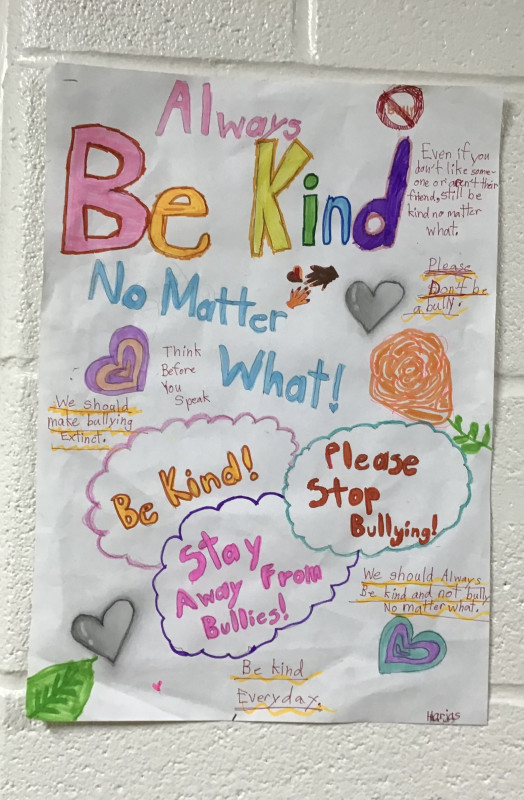 Always
Be Kind
Even if you
don't like some-
one or aren't their
friend, still be
kind no matter
what.
No Matter
What!
Please
Don't be
a bully.
Think
Before
You
Speak
We should
make bullying
Extinct.
Be Kind!
Please
Stop
Bullying!
Stay
Away From
Bullies!
We should Always
Be kind and not bully
No matter what.
Be kind
Everyday.
Harjas